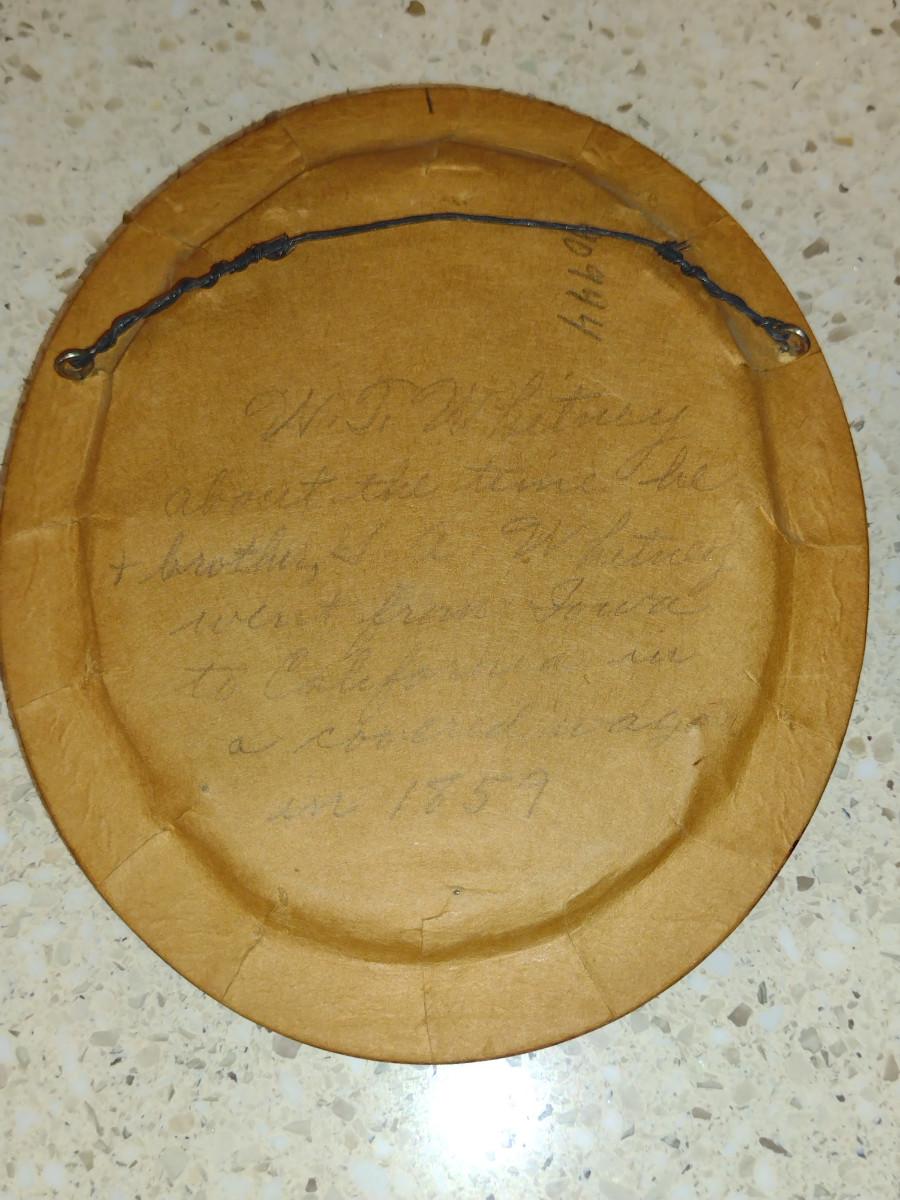 W. T. Whitney
about the time he
+ brother, G. A. Whitney
went from Iowa
to California in
a covered wago
in 1859